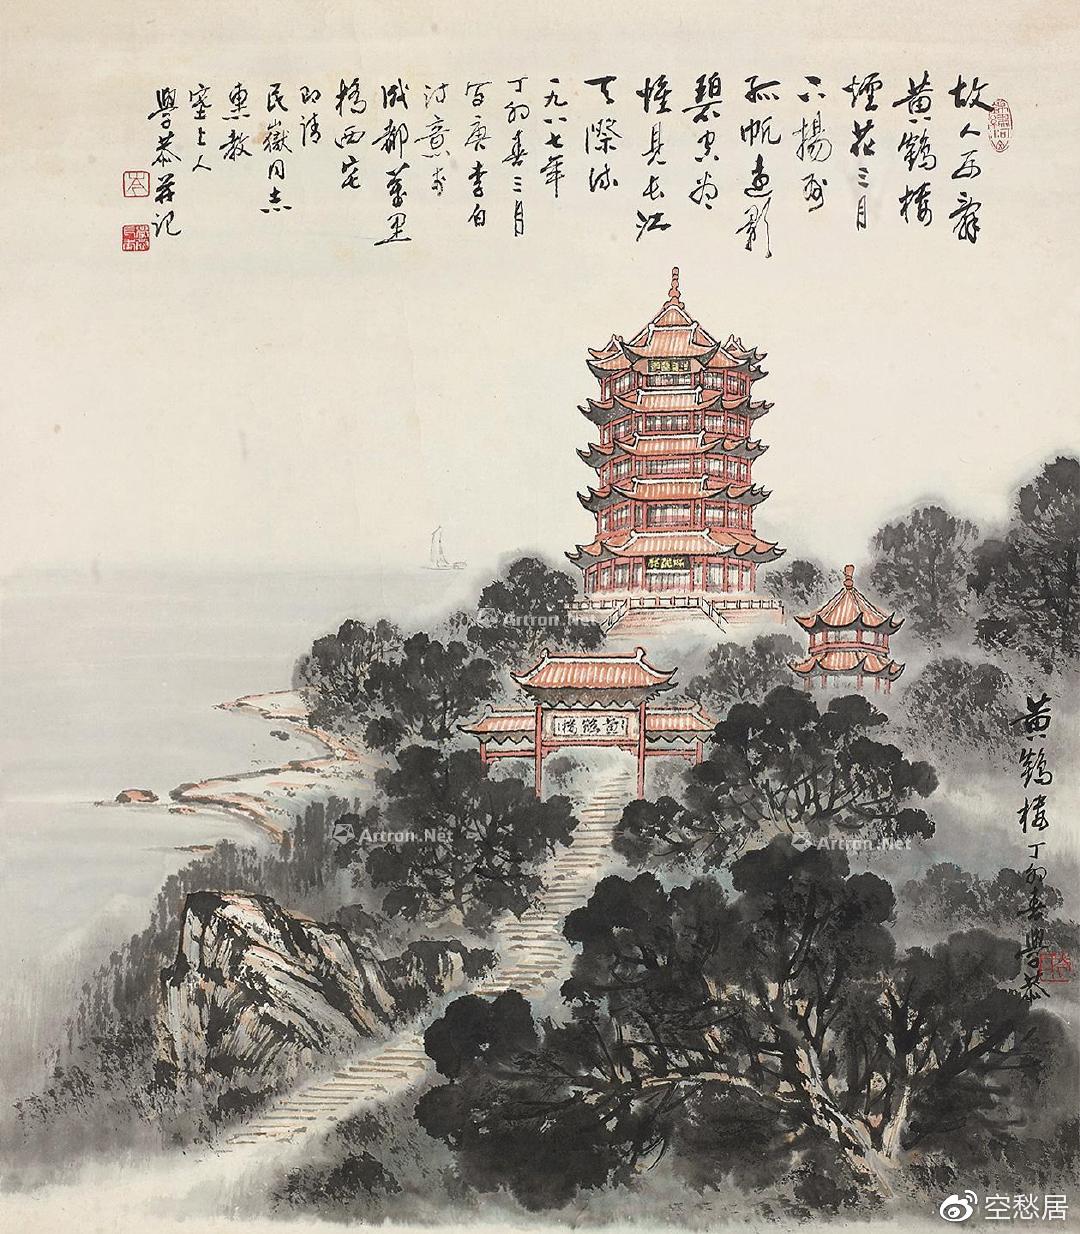 故人西辭
黄鶴楼
煙花三月
下揚州
孤帆遠影
碧空尽
惟見长江
天際流
一九八七年
丁卯春三月
写唐李白
诗意于
成都萬里
橋西宅
即请
民嶽同志
惠教
塞上人
學恭并记
黄鶴樓
黄鶴楼 丁卯春學恭
Artron.Net
Artron.Net
Artron.Net
空愁居